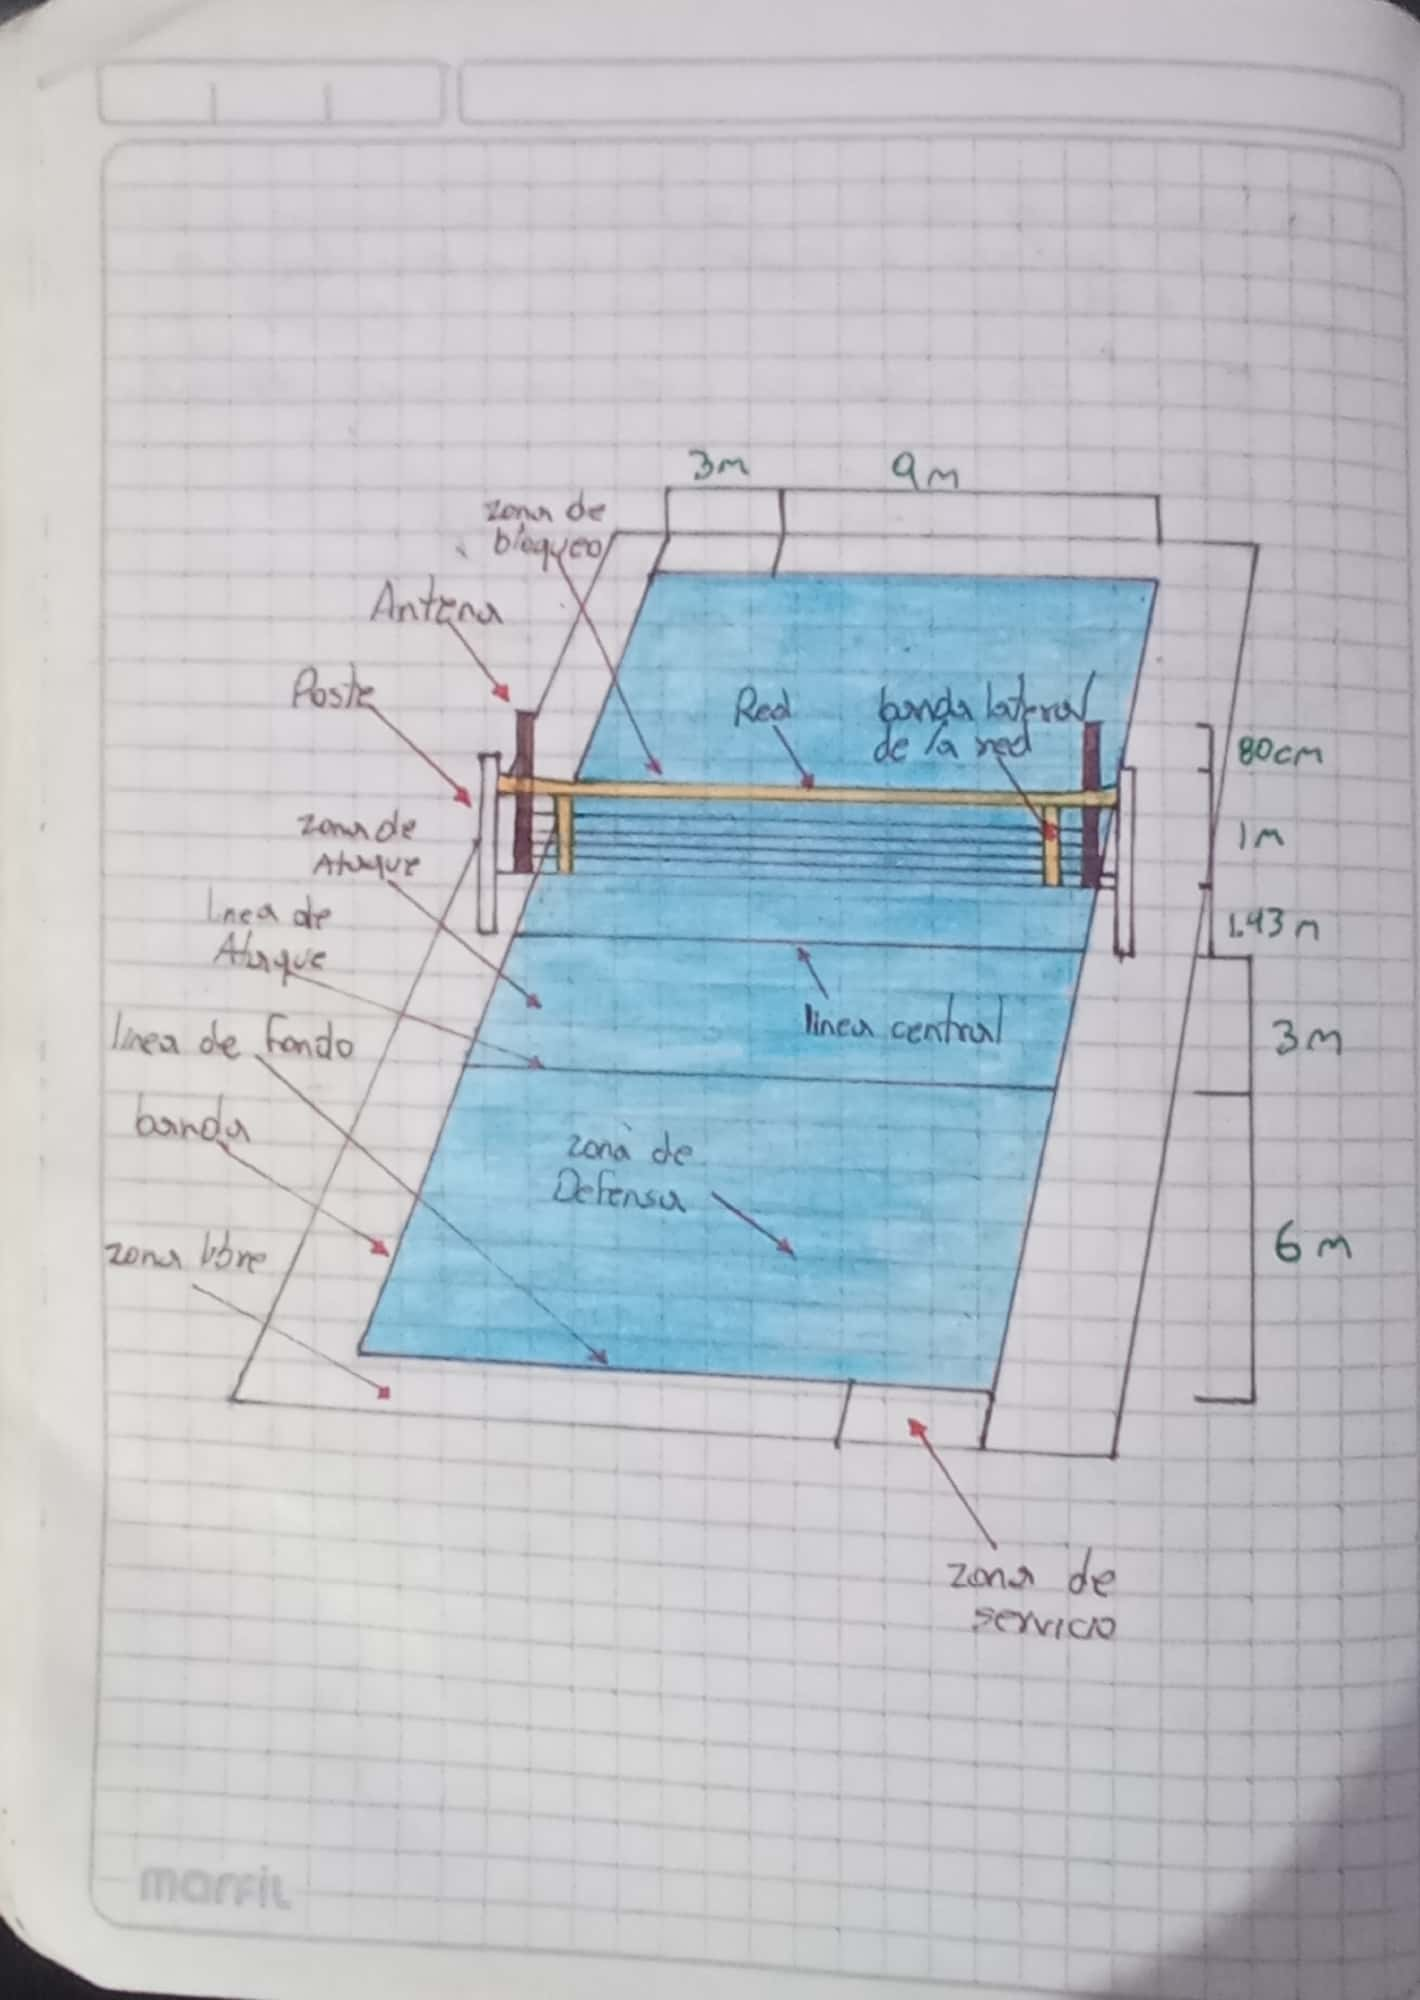 3m 9m
zona de
bloqueo
Antena
Poste
Red
banda lateral
de la red
80cm
zona de
Ataque
1m
linea de
Ataque
1.43 m
linea central
linea de fondo
3m
banda
zona de
Defensa
zona libre
6m
zona de
servicio
marfil